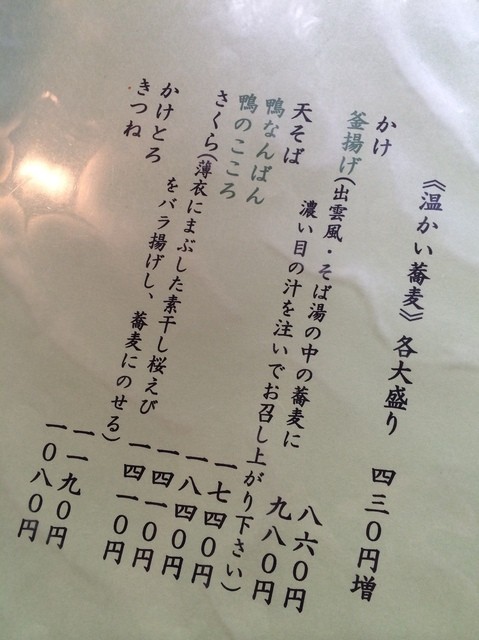 《温かい蕎麦》各大盛り 四三〇円増
かけ 八六〇円
釜揚げ(出雲風・そば湯の中の蕎麦に 九八〇円
濃い目の汁を注いでお召し上がり下さい)
天そば 一七四〇円
鴨なんばん 一八四〇円
鴨のこころ 一四一〇円
さくら(薄衣にまぶした素干し桜えび 一四一〇円
をバラ揚げし、蕎麦にのせる)
かけとろ 一一九〇円
きつね 一〇八〇円